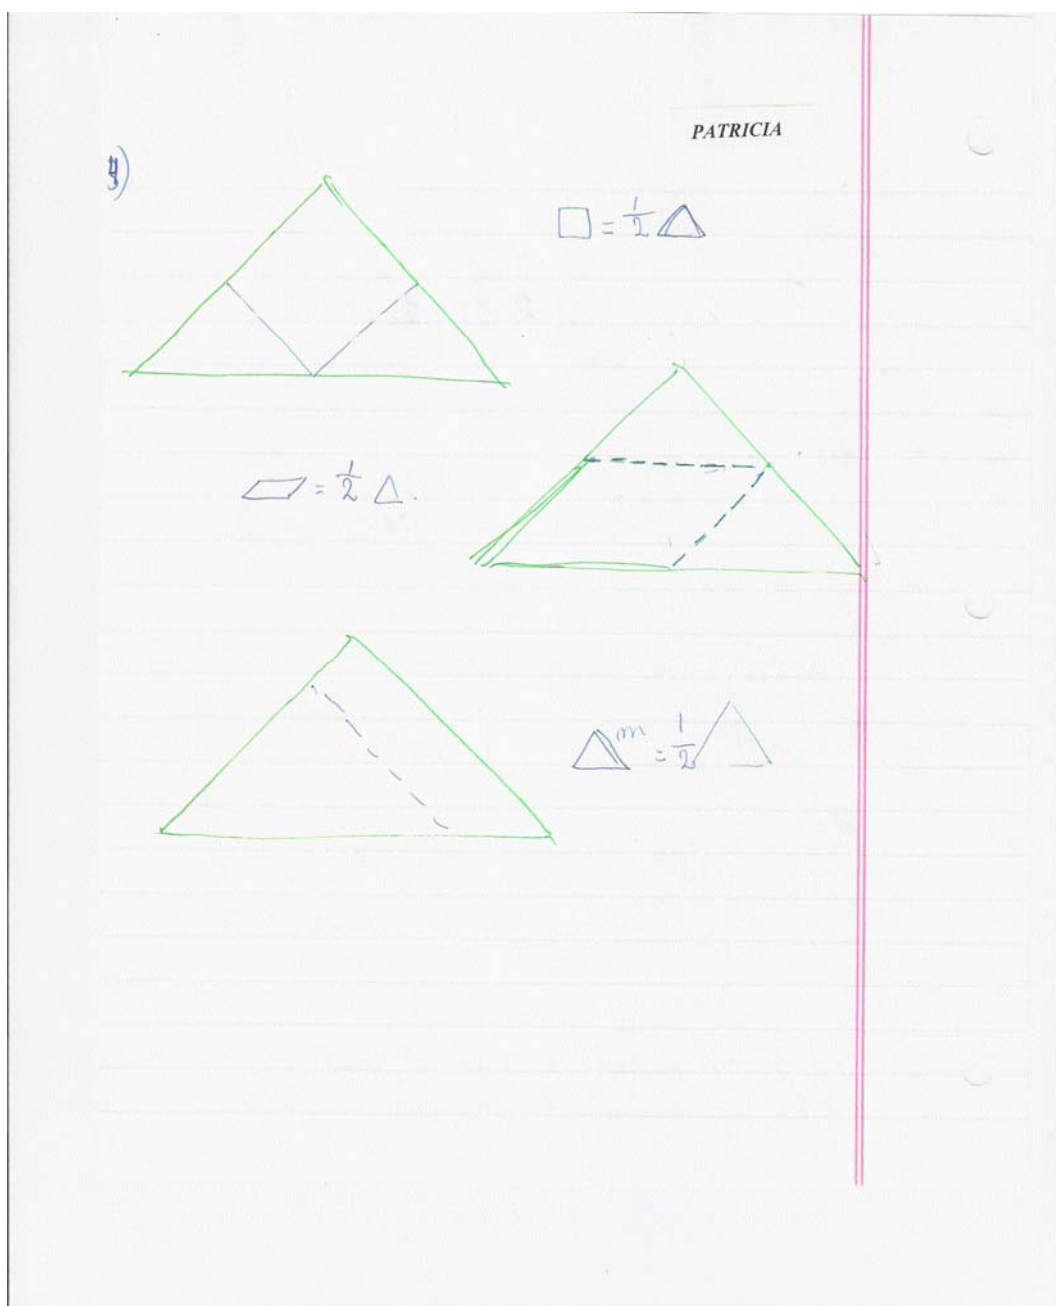 PATRICIA
4)
□ = 1/2 △
▱ = 1/2 △.
△ m = 1/2 △